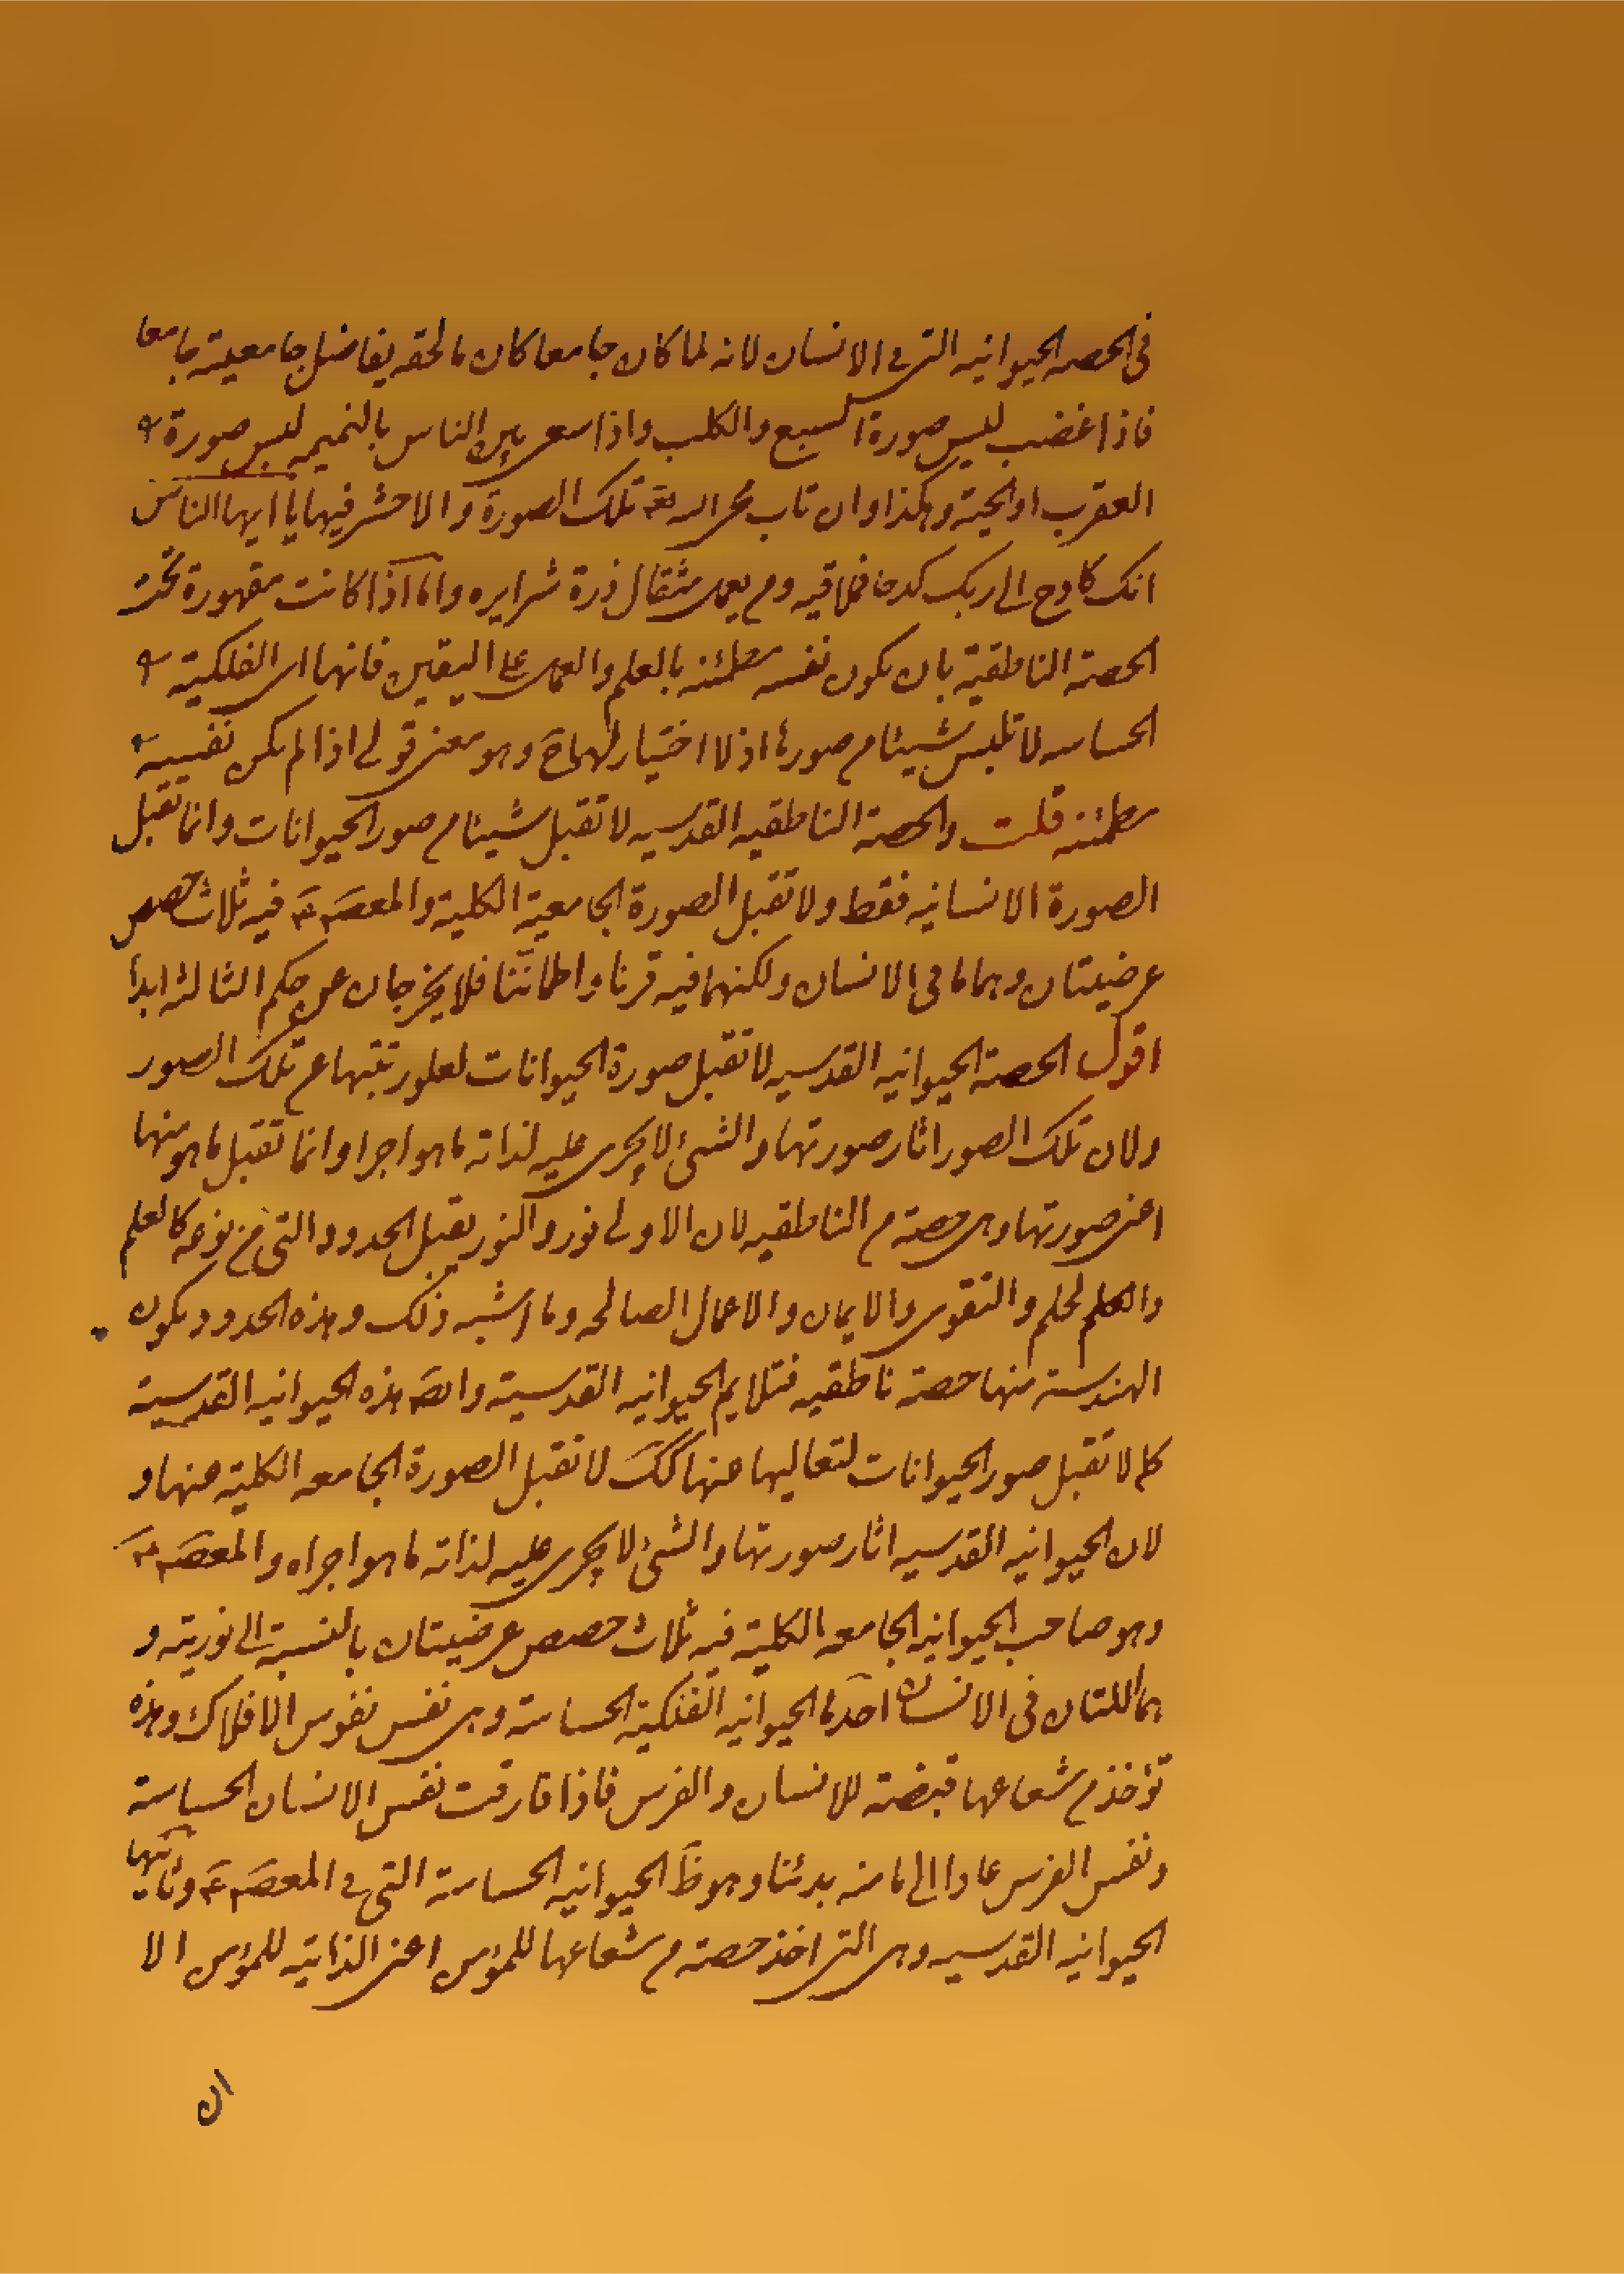 فى الحصه الحيوانيه التى فى الانسان لانه لما كان جامعا كان ما لحقه يفاضل جامعية جامعا
فاذا غضب لبس صورة السبع والكلب واذا سعى بين الناس بالنميمه لبس صورة
العقرب او الحية وهكذا وان تاب محى الله تعه تلك الصورة والا حشر فيها يا ايها الناس
انك كادح الى ربك كدحا فملاقيه ومن يعمل مثقال ذرة شرا يره واما اذا كانت مقهورة تحت
الحصة الناطقية بان يكون نفسه مطمئنه بالعلم والعمل على اليقين فانها اى الفلكية
الحساسه لا تلبس شيئا من صورها اذ لا اختيار لها ح وهو معنى قولى اذا لم يكن نفسيه
مطمئنه قلت والحصة الناطقيه القدسيه لا تقبل شيئا من صور الحيوانات وانما تقبل
الصورة الانسانيه فقط ولا تقبل الصورة الجامعية الكلية والمعصم ع فيه ثلاث حصص
عرضيتان وهما ما فى الانسان ولكنهما فيه قرتا واطمانتا فلا يخرجان عن حكم الثالثه ابدا
اقول الحصة الحيوانيه القدسيه لا تقبل صورة الحيوانات لعلو رتبتها عن تلك الصور
ولان تلك الصور اثار صورتها والشئ لا يجرى عليه لذاته ما هو اجرا وانما تقبل ما هو منها
اعنى صورتها وهى حصة من الناطقيه لان الاولى نور والنور يقبل الحدود التى من نوعه كالعلم
والعلم لحلم والتقوى والايمان والاعمال الصالحه وما اشبه ذلك وهذه الحدود يكون
الهندسة منها حصة ناطقيه فتلايم الحيوانيه القدسية وايضه هذه الحيوانيه القدسية
كما لا تقبل صور الحيوانات لتعاليها عنها كك لا تقبل الصورة الجامعه الكلية عنها و
لان الحيوانيه القدسيه اثار صورتها والشئ لا يجرى عليه لذاته ما هو اجراه والمعصم ع
وهو صاحب الحيوانيه الجامعه الكلية فيه ثلاث حصص عرضيتان بالنسبة الى نوريته و
هما اللتان فى الانسان احدها الحيوانيه الفلكية الحساسة وهى نفس نفوس الافلاك وهذه
تؤخذ من شعاعها قبضة للانسان والفرس فاذا فارقت نفس الانسان الحساسة
ونفس الفرس عادا الى ما منه بدئنا وهو ظ الحيوانيه الحساسة التى فى المعصم ع وثانيها
الحيوانيه القدسيه وهى التى اخذ حصة من شعاعها للمؤمن اعنى الذاتيه للمؤمن الا
ان